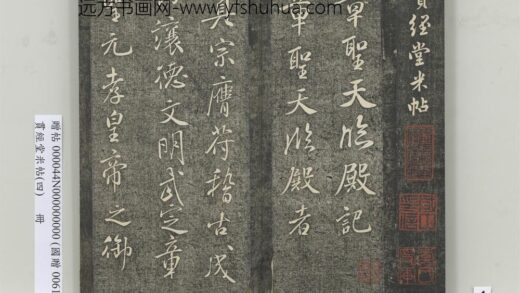 远方书画网--www.yfshuhua.com
貫經堂米帖
章聖天臨殿記
章聖天臨殿者
真宗膺符稽古成
讓德文明武定章
聖元孝皇帝之御
贈帖 000044N000000000 (國贈 0061
貫經堂米帖(四) 冊